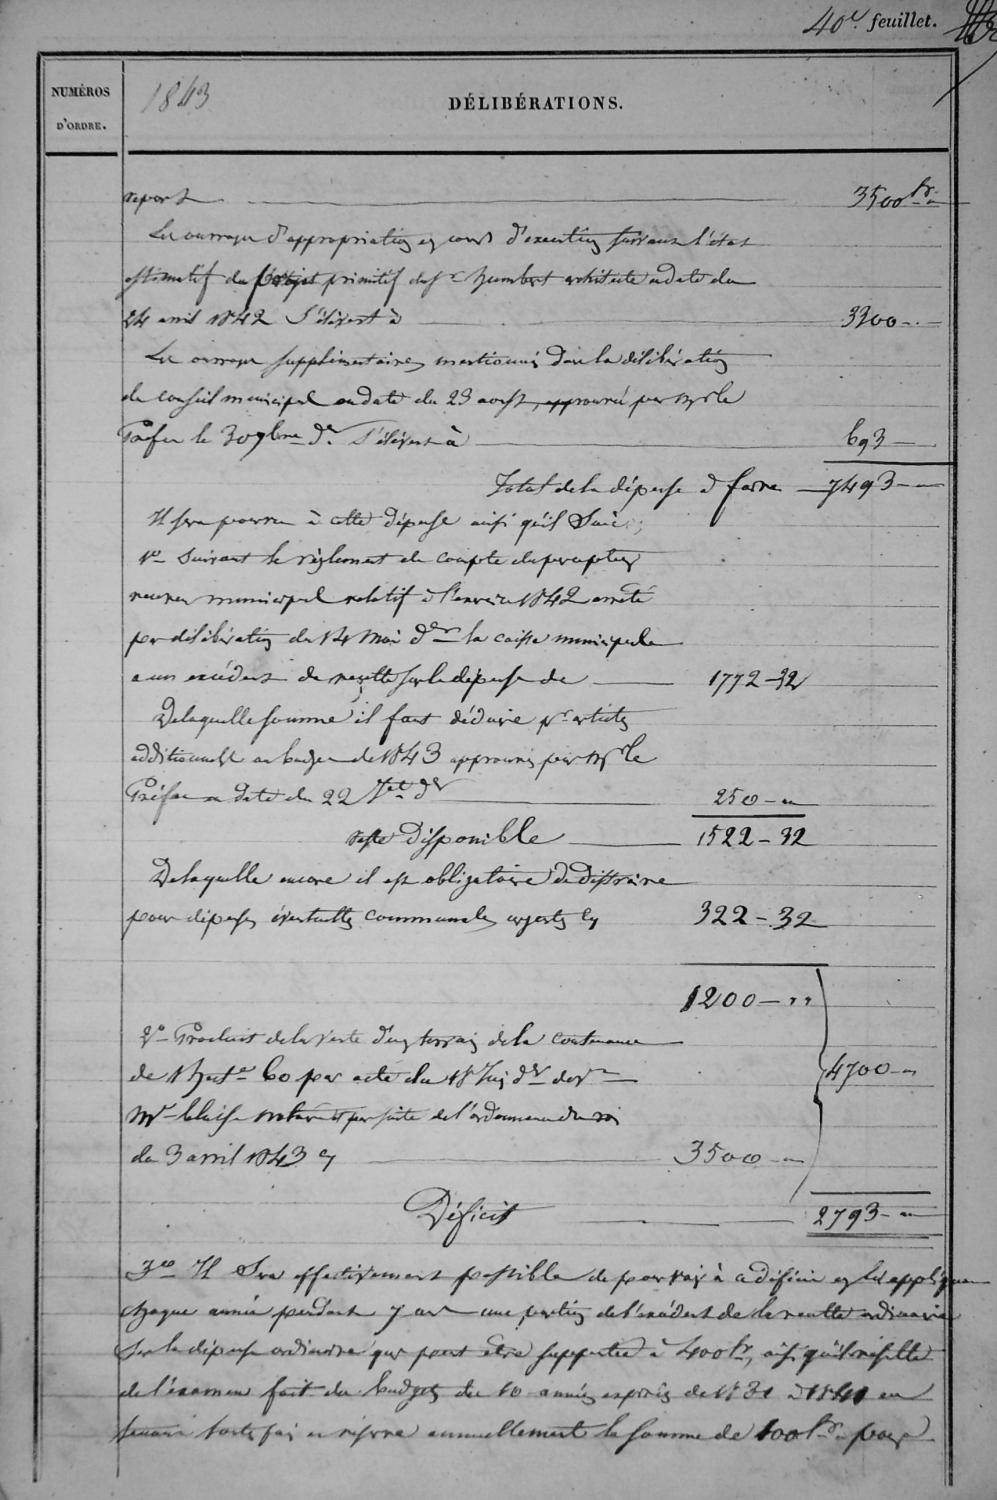 40e. feuillet.
NUMÉROS D'ORDRE.
1843
DÉLIBÉRATIONS.
report 3500 fr. "
Les ouvrages d'appropriation en cours d'exécution suivant l'état
estimatif du projet primitif du Sr Humbert architecte en date du
24 avril 1842 s'élèvent à 3300 - "
Les ouvrages supplémentaires mentionnés dans la délibération
du conseil municipal en date du 23 aoust, approuvé par Mr le
Préfet le 30 9bre dr s'élèvent à 693 -
Total de la dépense à faire 7493 - "
Il sera pourvu à cette dépense ainsi qu'il suit ;
1° Suivant le règlement de compte du percepteur
receveur municipal relatif à l'exercice 1842 arrêté
par délibération du 14 Mai dr la caisse municipale
a un excédent de recette sur la dépense de 1772 - 32
De laquelle somme il faut déduire pr articles
additionnels au budget de 1843 approuvés par Mr le
Préfet en date du 22 dr 250 - "
reste disponible 1522 - 32
De laquelle encore il est obligatoire de distraire
pour dépenses éventuelles communales urgentes cy 322 - 32
1200 - " "
2° Produit de la vente d'un terrain de la contenance
de 1 hecte 60 par acte du 18 Juin dr
Mr Blaise notaire et par suite de l'ordonnance du roi
du 3 avril 1843 cy 3500 - "
4700 - "
Déficit 2793 - "
3° Il sera effectivement possible de pourvoir à ce déficit en y appliquant
chaque année pendant 7 ans une portion de l'excédent de la recette ordinaire
sur la dépense ordinaire qui peut être supportée à 400 fr, ainsi qu'il résulte
de l'examen fait des budgets des 10 années expirées de 1831 à 1841 en
tenant toutefois en réserve annuellement la somme de 100 fr. pour